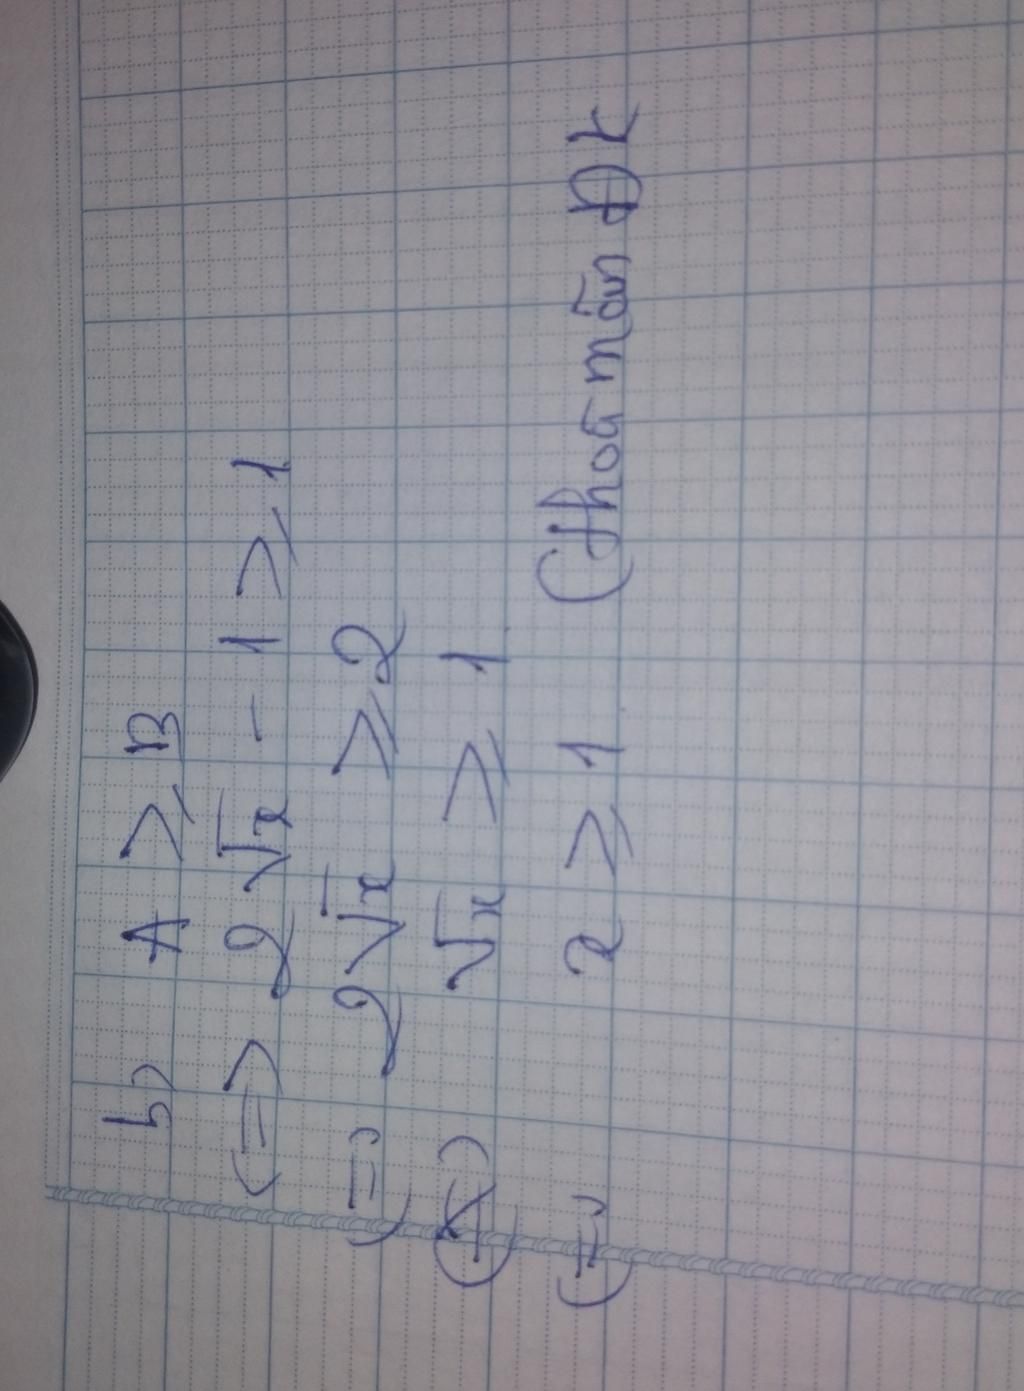 b) A ⩾ B
<=> 2√x - 1 ⩾ 1
<=> 2√x ⩾ 2
<=> √x ⩾ 1
<=> x ⩾ 1 (thoả mãn ĐK